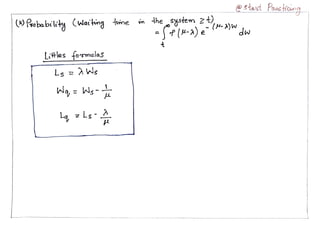 @ start Practicing
(x) Probability (Waiting time in the system ≥ t)
= ∫ₜ^∞ ρ (μ-λ) e^-(μ-λ)w dw
Littles formulas
Ls = λ Ws
Wq = Ws - 1/μ
Lq = Ls - λ/μ